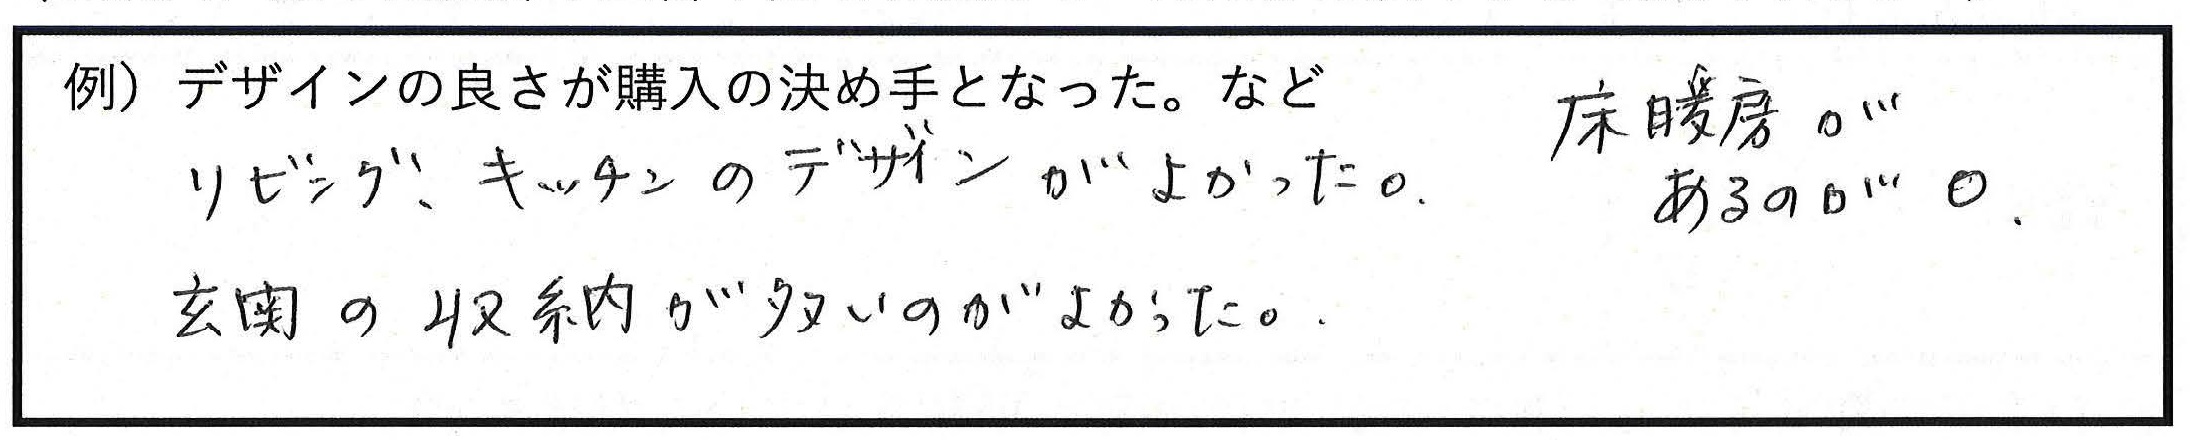 例）デザインの良さが購入の決め手となった。など
リビング、キッチンのデザインがよかった。
玄関の収納が多いのがよかった。
床暖房が
あるのが〇.